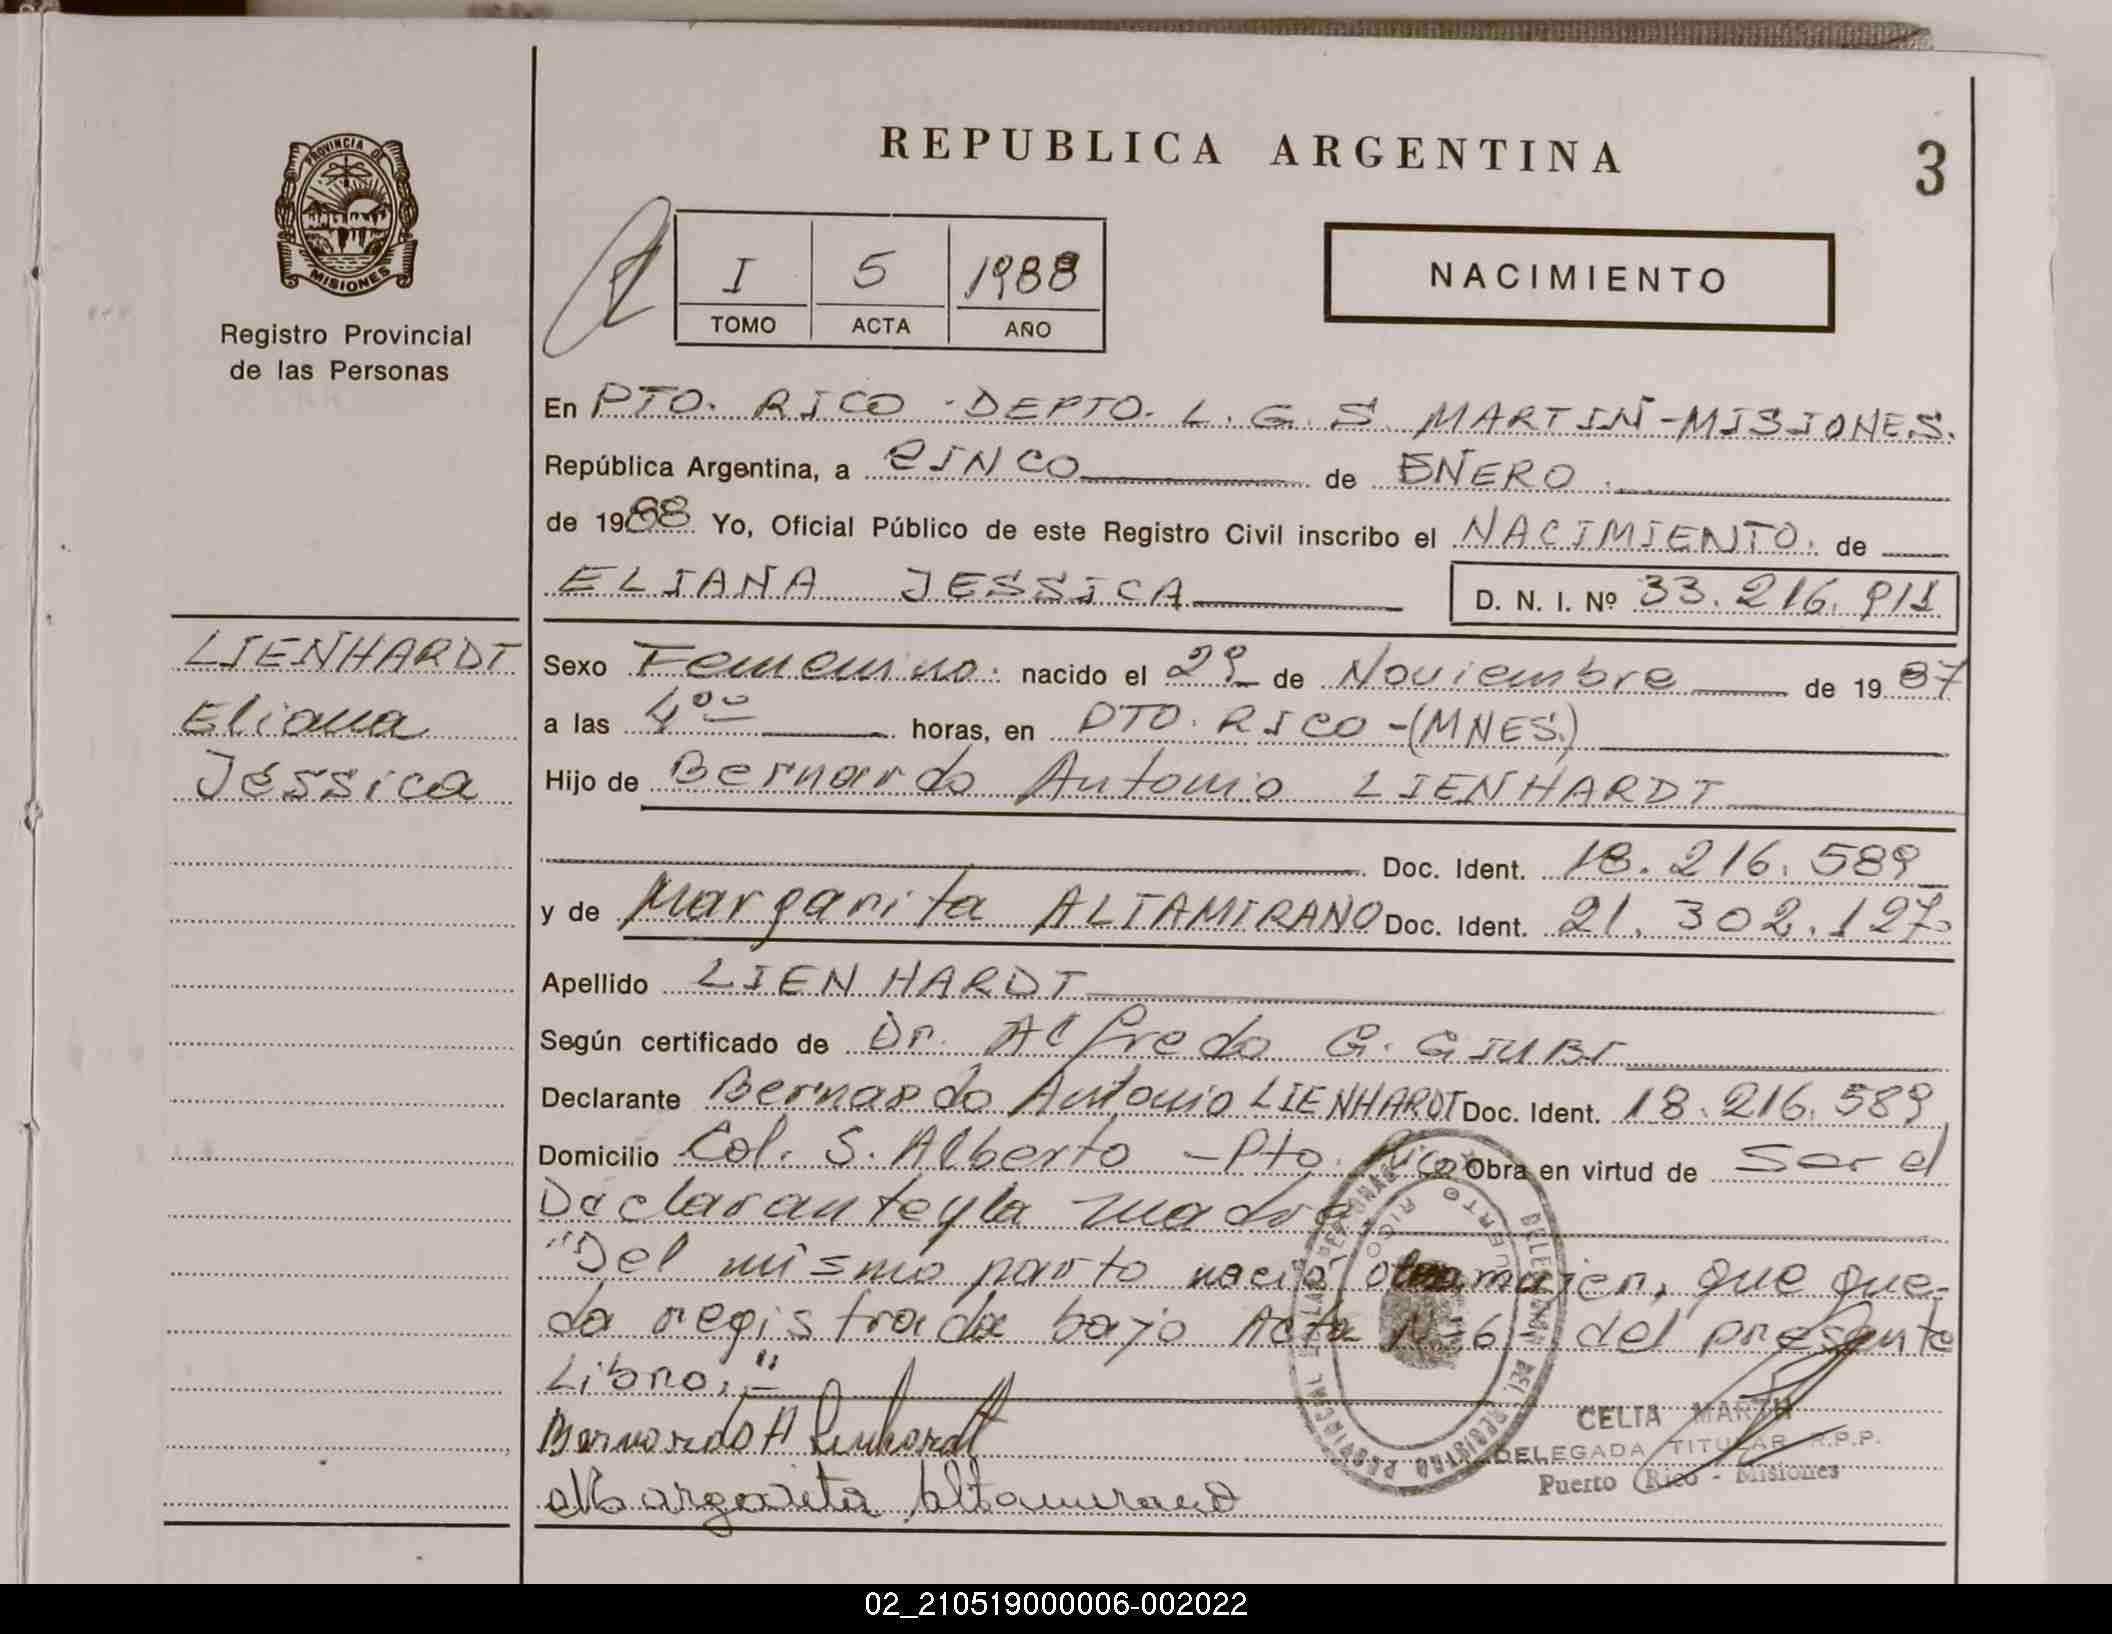 REPUBLICA ARGENTINA
3
PROVINCIA DE
MISIONES
Registro Provincial
de las Personas
I 5 1988
TOMO ACTA AÑO
NACIMIENTO
En PTO. RICO - DEPTO. L. G. S. MARTIN - MISIONES.
República Argentina, a CINCO de ENERO.
de 1988 Yo, Oficial Público de este Registro Civil inscribo el NACIMIENTO. de
ELIANA JESSICA D. N. I. Nº 33.216.911
LIENHARDT
Eliana
Jéssica
Sexo Femenino. nacido el 29 de Noviembre de 1987
a las 4⁰⁰ horas, en PTO. RICO - (MNES.)
Hijo de Bernardo Antonio LIENHARDT
Doc. Ident. 18.216.589
y de Margarita ALTAMIRANO Doc. Ident. 21.302.127
Apellido LIENHARDT
Según certificado de Dr. Alfredo G. GIUBI
Declarante Bernardo Antonio LIENHARDT Doc. Ident. 18.216.589
Domicilio Col. S. Alberto - Pto. Rico Obra en virtud de Ser el
Declarante y la madre.
"Del mismo parto nació otra mujer, que que-
da registrada bajo Acta Nº 6 del presente
Libro.-"
Bernardo A Lienhardt
Margarita Altamirano
CELIA MARTH
DELEGADA TITULAR R.P.P.
Puerto Rico - Misiones
PUERTO RICO
DELEGACION DEL REGISTRO PROVINCIAL DE LAS PERSONAS
02_210519000006-002022